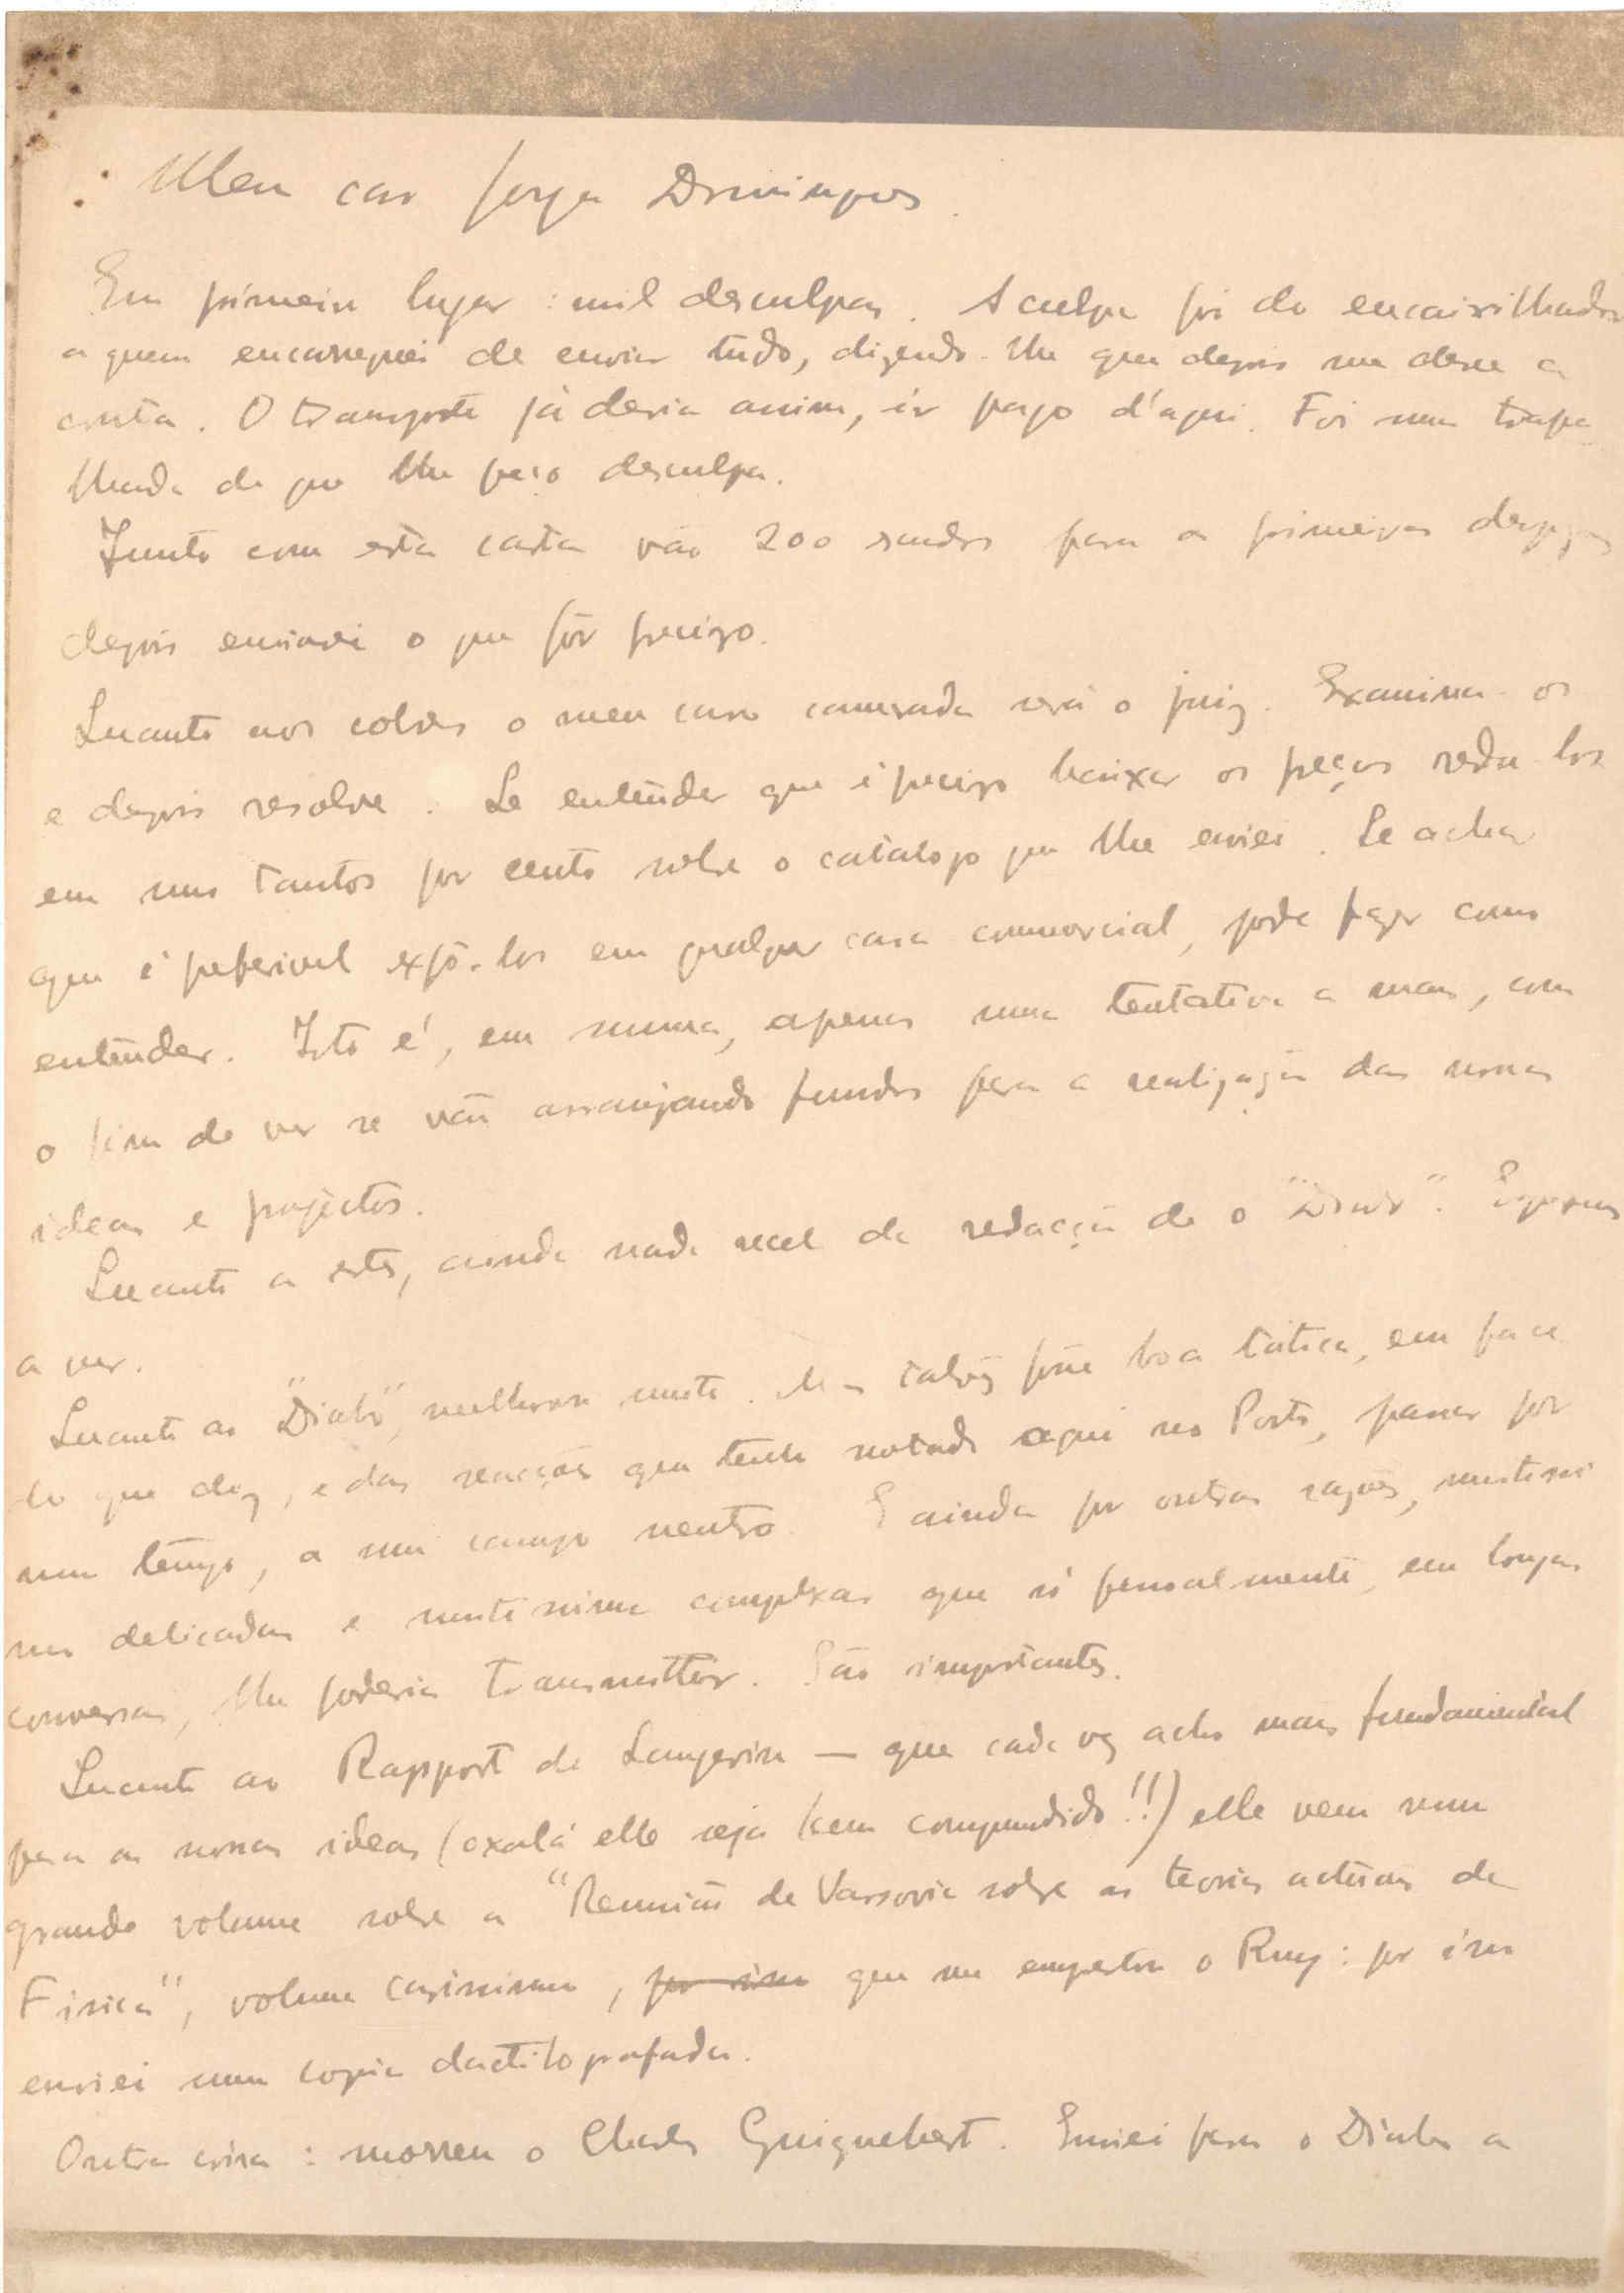 Meu caro Jorge Domingues.
Em primeiro lugar: mil desculpas. A culpa foi do encaixilhador
a quem encarreguei de enviar tudo, dizendo-lhe que depois me desse a
conta. O transporte já devia assim, ir pago d'aqui. Foi uma trapa-
lhada de que lhe peço desculpa.
Junto com esta carta vão 200 escudos para as primeiras despezas
depois enviarei o que fôr precizo.
Quanto aos cobres o meu caro camarada será o juiz. Examina-os
e depois resolve. Se entender que é precizo baixar os preços redu-los
em uns tantos por cento sobre o catalogo que lhe enviei. Se achar
que é preferivel expô-los em qualquer casa commercial, pode fazer como
entender. Isto é, em suma, apenas uma tentativa a mais, com
o fim de ver se vão arranjando fundos para a realização das nossas
ideas e projectos.
Quanto a estes, ainda nada recebi da redacção de o "Diabo". Esperemos
a ver.
Quanto ao "Diabo", melhorou muito. Mas talvez fôsse boa tática, em face
do que diz, e das reacções que tenho notado aqui no Porto, passar por
um tempo, a um campo neutro. E ainda por outras razões, muitissi-
mo delicadas e muitissimo complexas que só pessoalmente, em longas
conversas, lhe poderia transmittir. São importantes.
Quanto ao Rapport de Langevin — que cada vez acho mais fundamental
para as nossas ideas (oxalá elle seja bem compreendido!!) elle vem num
grande volume sobre a "Reunião de Varsovia sobre as teorias actuais da
Fisica", volume carissimo, por isso que me emprestou o Ruy: por isso
enviei uma copia dactilografada.
Outra coisa: morreu o Charles Guignebert. Enviei para o Diabo a